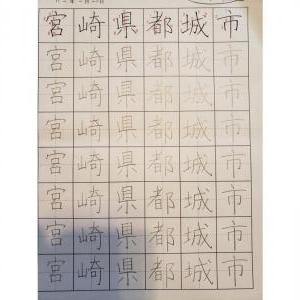 宮崎県都城市
宮崎県都城市
宮崎県都城市
宮崎県都城市
宮崎県都城市
宮崎県都城市
宮崎県都城市
宮崎県都城市